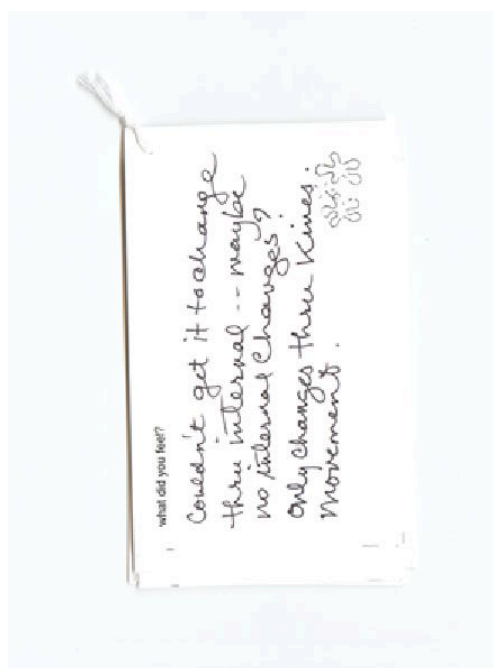 what did you feel?
Couldn't get it to change
thru internal -- maybe
no internal changes?
Only changes thru kines.
movement.